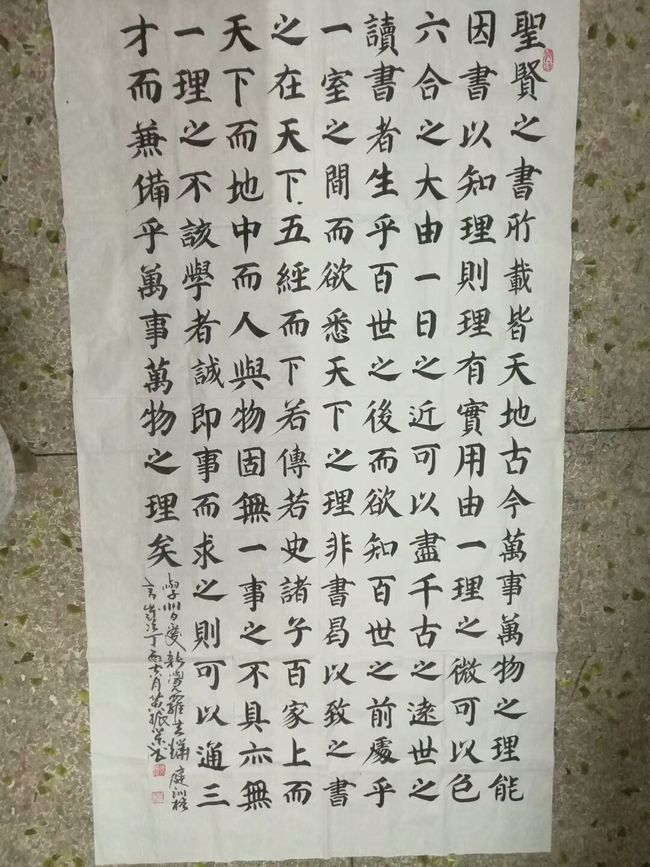 聖賢之書所載皆天地古今萬事萬物之理能
因書以知理則理有實用由一理之微可以色
六合之大由一日之近可以盡千古之遠世之
讀書者生乎百世之後而欲知百世之前處乎
一室之間而欲悉天下之理非書曷以致之書
之在天下五經而下若傳若史諸子百家上而
天下而地中而人與物固無一事之不具亦無
一理之不該學者誠即事而求之則可以通三
才而兼備乎萬事萬物之理矣
學習愛新覺羅玄燁庭訓格
言歲次丁酉月黃振榮